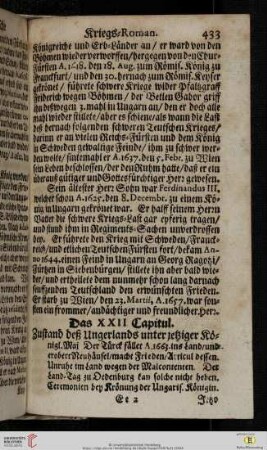 Kriegs-Roman. 433
Königreiche und Erb-Länder an / er ward von den
Böhmen wieder verworffen / hergegen von den Chur-
Fürsten A. 1619. den 18. Aug. zum Römis. König zu
Franckfurt / und den 30. hernach zum Römis. Keyser
gekrönet / führete schwere Kriege wider Pfaltzgraff
Friederich wegen Böhmen / der Betlen Gabor griff
ihn deßwegen 2. mahl in Ungarn an / den er doch alle
mahl wieder stillete / aber es schiene / als wann die Last
deß hernach folgenden schweren Teutschen Krieges /
darinn er an vielen Reichs-Fürsten und dem König
in Schweden gewaltige Feinde / ihm zu schwer wer-
den wolte / sintemahl er A. 1637. den 5. Febr. zu Wien
sein Leben beschlossen / der den Ruhm hatte / daß er ein
überaus gütiger und Gottesfürchtiger Herr gewesen.
Sein ältester Herr Sohn war Ferdinandus III.
welcher schon A. 1625. den 8. Decembr. zu einem Kö-
nig in Ungarn gekrönet war. Er half seinem Herrn
Vater die schwere Kriegs-Last gar eyferig tragen /
und stund ihm in Regiments-Sachen unverdrossen
ey. Er führete den Krieg mit Schweden / Franck-
reich / und etlichen Teutschen Fürsten fort / bekam An-
no 1644. einen Feind in Ungarn an Georg Ragotzi /
Fürsten in Siebenbürgen / stillete ihn aber bald wie-
der / und ertheilete dem nunmehr schon lang darnach
seufzenden Teutschland den erwünschten Frieden.
Er starb zu Wien / den 23. Martii, A. 1657. war son-
sten ein frommer / andächtiger und freundlicher Herr.
Das XXII Capitul.
Zustand deß Ungerlands unter jetziger Kö-
nigl. Maj. Der Türck fället A. 1663. ins Land / und
erobert Neuhäusel / macht Frieden / Articul dessen.
Unruhe im Land wegen der Malcontenten. Der
Land-Tag zu Oedenburg kan solche nicht heben.
Ceremonien bey Krönung der Ungaris. Königin.
Ee 2